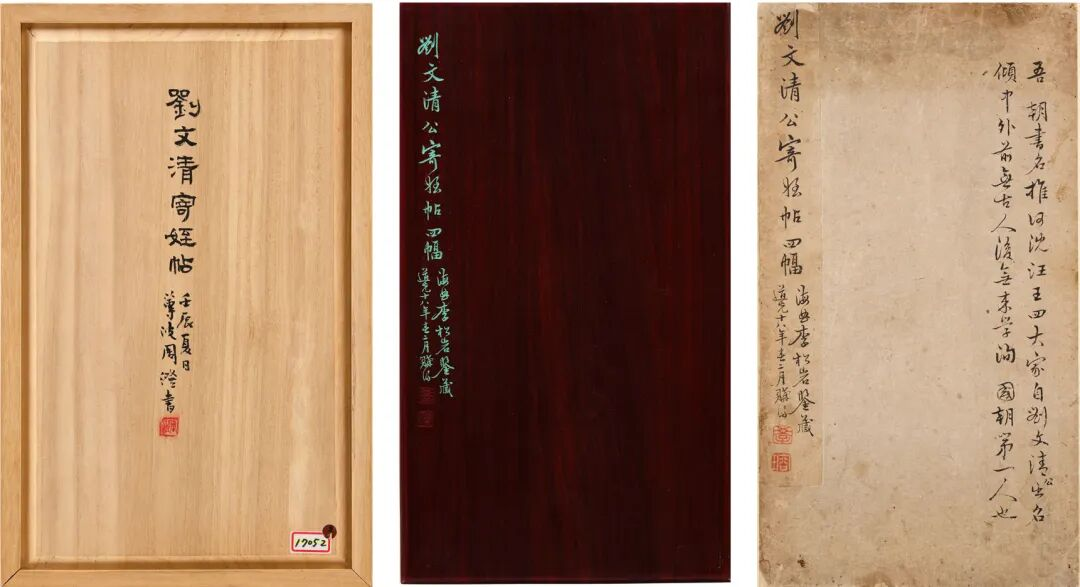 劉文清寄姪帖
壬辰夏日
蓴波周澄書
17052
劉文清公寄姪帖四幅
李松岩鑒藏
道光十八年春二月
劉文清公寄姪帖四幅
李松岩鑒藏
道光十八年春二月
吾朝書名推何沈汪王四大家自劉文清公出名
傾中外前無古人後無来学洵國朝第一人也